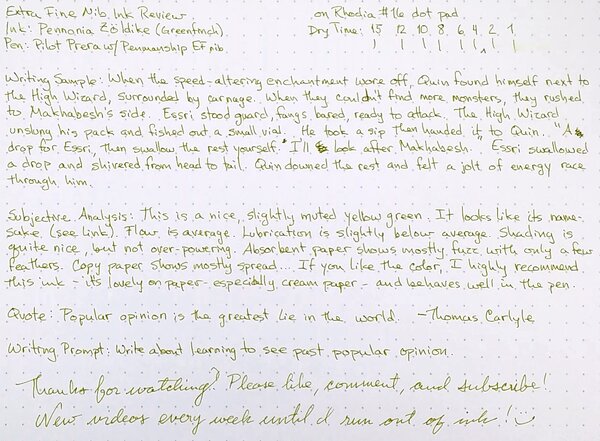 Extra Fine Nib Ink Review on Rhodia #16 dot pad
Ink: Pennonia Zöldike (Greenfinch) Dry Time: 15 12 10 8 6 4 2 1
Pen: Pilot Prera w/ Penmanship EF nib
Writing Sample: When the speed-altering enchantment wore off, Quin found himself next to
the High Wizard, surrounded by carnage. When they couldn't find more monsters, they rushed
to Makhabesh's side. Essri stood guard, fangs bared, ready to attack. The High Wizard
unslung his pack and fished out a small vial. He took a sip then handed it to Quin. "A
drop for Essri, then swallow the rest yourself." I'll look after Makhabesh." Essri swallowed
a drop and shivered from head to tail. Quin downed the rest and felt a jolt of energy race
through him.
Subjective Analysis: This is a nice, slightly muted yellow green. It looks like its name-
sake. (see link). Flow is average. Lubrication is slightly below average. Shading is
quite nice, but not over-powering. Absorbent paper shows mostly fuzz with only a few
feathers. Copy paper shows mostly spread... If you like the color, I highly recommend
this ink - it's lovely on paper - especially cream paper - and behaves well in the pen.
Quote: Popular opinion is the greatest lie in the world. -Thomas Carlyle
Writing Prompt: Write about learning to see past popular opinion.
Thanks for watching! Please like, comment, and subscribe!
New videos every week until I run out of ink! :)